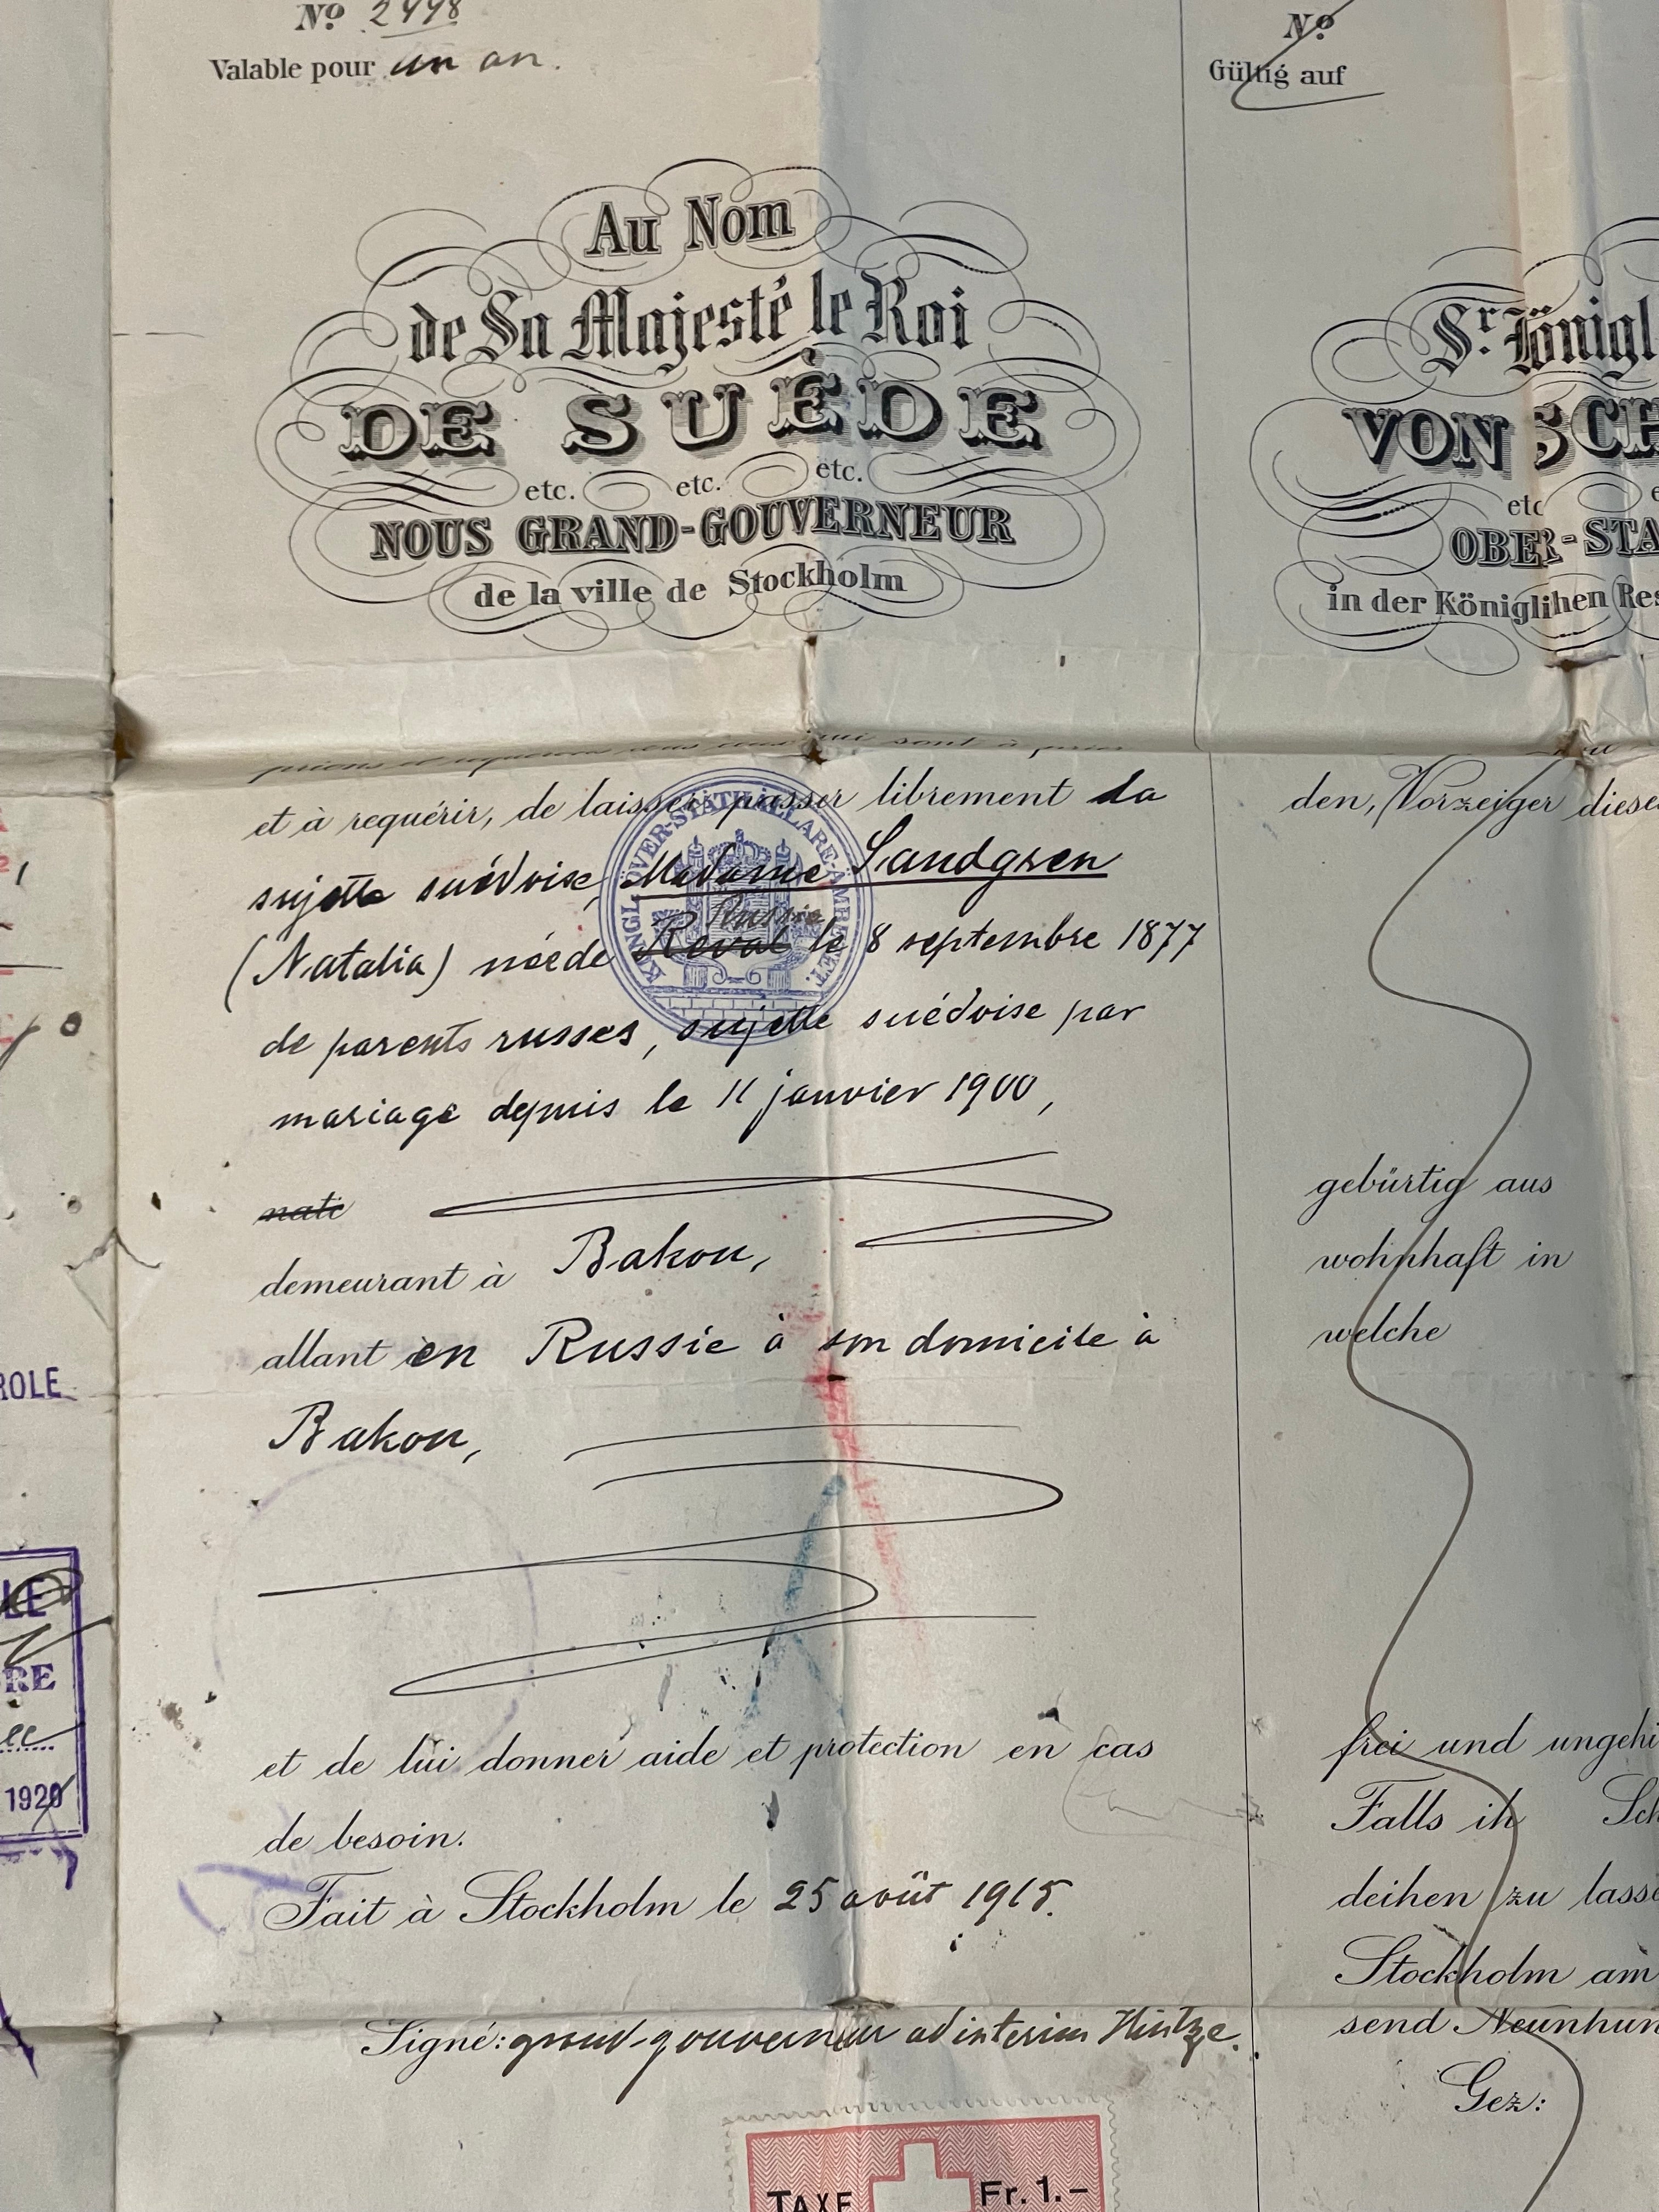 No 2998
Valable pour un an.
Au Nom
de Sa Majesté le Roi
DE SUÈDE
etc. etc. etc.
NOUS GRAND-GOUVERNEUR
de la ville de Stockholm
et à requérir, de laisser passer librement la
sujette suédoise, Madame Sandgren
Russie
(Natalia) née de Reval le 8 septembre 1877
de parents russes, sujette suédoise par
mariage depuis le 11 janvier 1900,
natif
demeurant à Bakou,
allant en Russie à son domicile à
Bakou,
et de lui donner aide et protection en cas
de besoin.
Fait à Stockholm le 25 août 1915.
Signé: grand-gouverneur ad interim Hintze.
TAXE Fr. 1.–
KONGL. ÖVER-STÅTHÅLLARE-ÄMBETET.
No
Gültig auf
Sr. Königl
VON SCH
etc
OBER-STA
in der Königlihen Res
den, Vorzeiger diese
gebürtig aus
wohnhaft in
welche
frei und ungehi
Falls ih Sch
deihen zu lasse
Stockholm am
send Neunhun
Gez:
ROLE
LE
RE
1920